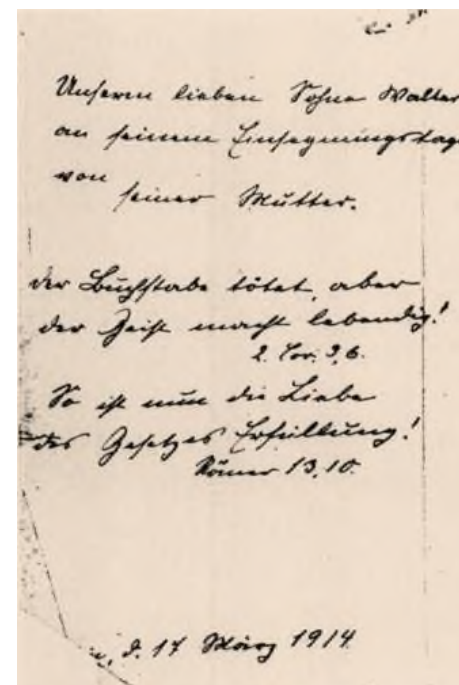 Unserm lieben Sohne Walter
an seinem Einsegnungstag
von
seiner Mutter.
der Buchstabe tötet, aber
der Geist macht lebendig!
2. Cor. 3,6.
So ist nun die Liebe
des Gesetzes Erfüllung!
Römer 13,10.
d. 17 März 1914